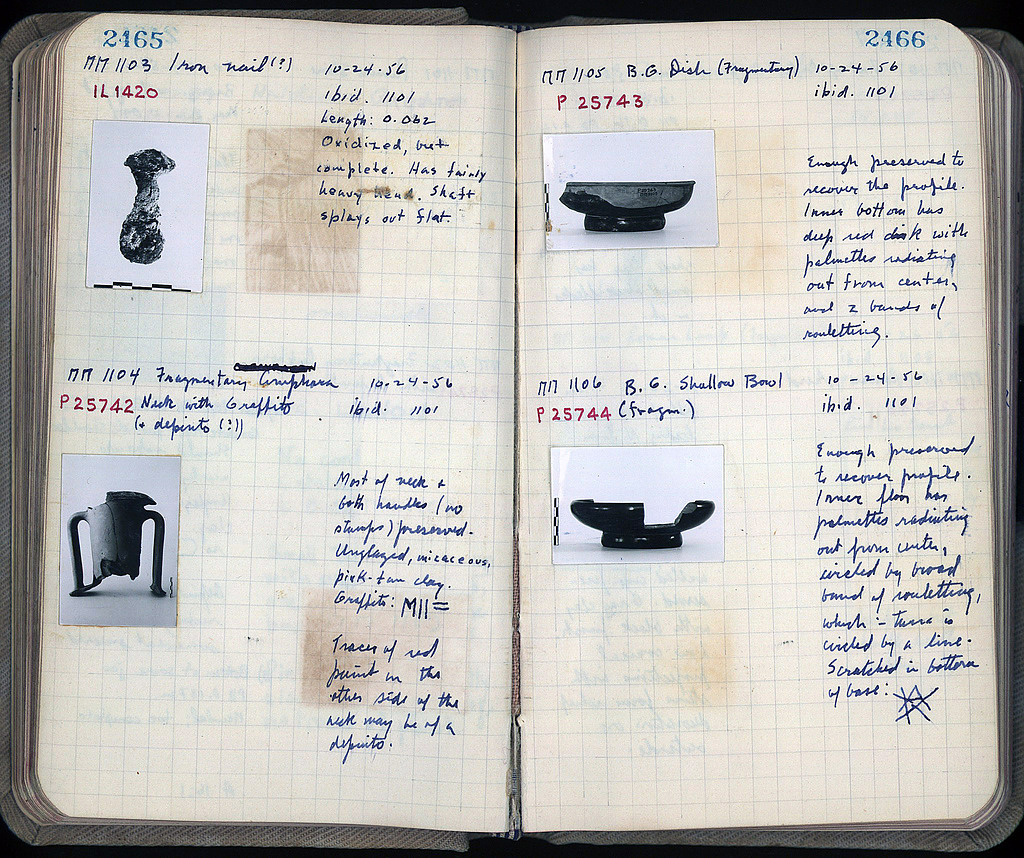 2465
ΠΠ 1103 Iron nail(?) 10-24-56
IL1420 ibid. 1101
Length: 0.062
Oxidized, but
complete. Has fairly
heavy head. Shaft
splays out flat.
ΠΠ 1104 Fragmentary Amphora 10-24-56
P25742 Neck with Graffito ibid. 1101
(+ depinto (?))
Most of neck +
both handles (no
stamps) preserved.
Unglazed, micaceous,
pink-tan clay.
Graffito: MII=
Traces of red
paint on the
other side of the
neck may be of a
depinto.
2466
ΠΠ 1105 B.G. Dish (Fragmentary) 10-24-56
P 25743 ibid. 1101
Enough preserved to
recover the profile.
Inner bottom has
deep red disk with
palmettes radiating
out from center,
and 2 bands of
rouletting.
ΠΠ 1106 B.G. Shallow Bowl 10-24-56
P25744 (fragm.) ibid. 1101
Enough preserved
to recover profile.
Inner floor has
palmettes radiating
out from center,
circled by broad
band of rouletting,
which in turn is
circled by a line.
Scratched in bottom
of base: